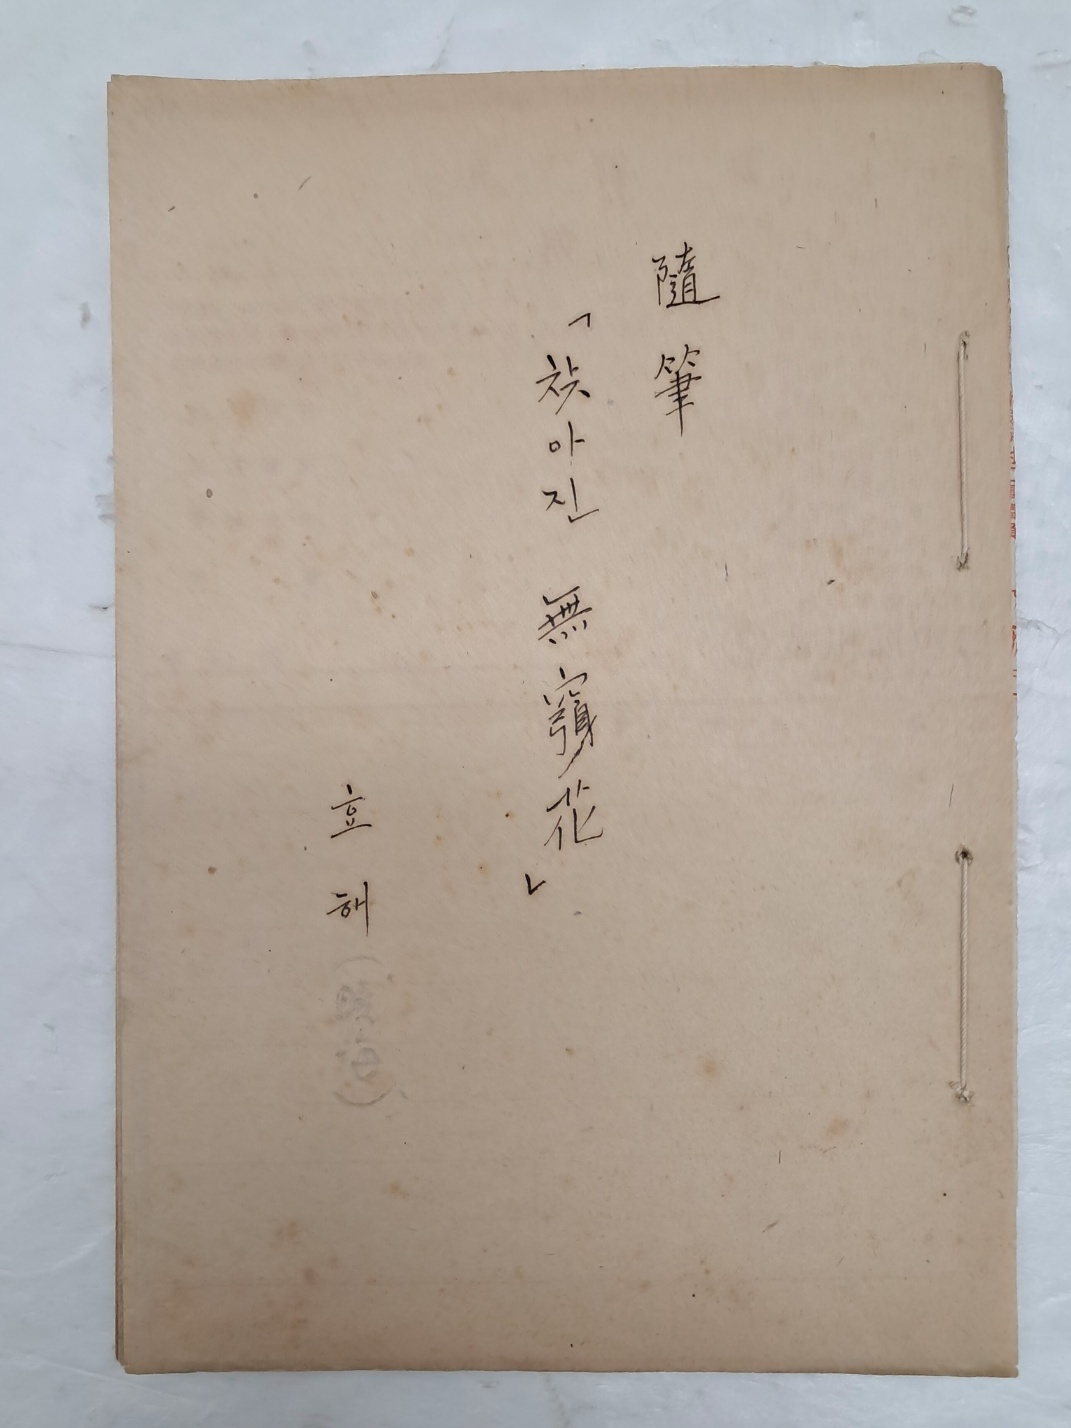 隨筆
「찾아진 無窮花」
효해